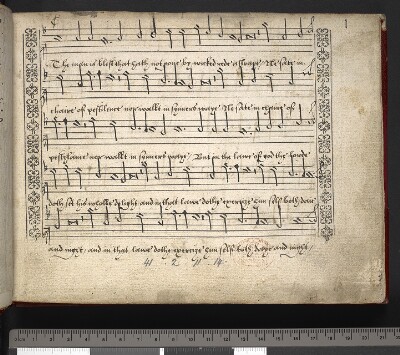 1
The man is blest that hath not gone by wicked rede a straye Ne sate in
chaire of pestilence nor walkt in synners waye Ne sate in chaire of
pestilence nor walkt in synners waye But in the lawe of god the lorde
doth set his wholle delyght and in that lawe dothe exercyse him self both daye
and nyght / and in that lawe dothe exercyse him self both daye and nyght /